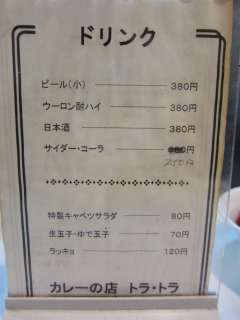 ドリンク
ビール(小) 380円
ウーロン酎ハイ 380円
日本酒 380円
サイダー・コーラ 円
特製キャベツサラダ 80円
生玉子・ゆで玉子 70円
ラッキョ 120円
カレーの店 トラ・トラ